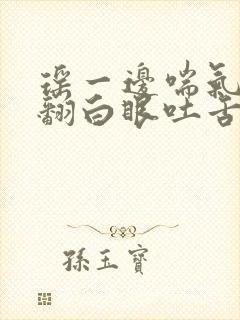 瑤一邊喘氣
翻白眼吐舌
孫玉寶